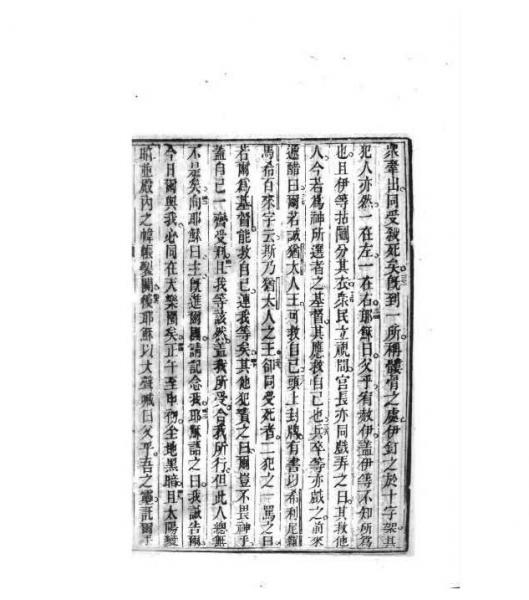 衆牽出同受殺死矣旣到一所稱髏骨之處伊釘之於十字架其
犯人亦然一在左一在右耶穌曰父乎宥赦伊蓋伊等不知所爲
也且伊等拈鬮分其衣衆民立視間官長亦同戲弄之曰其救他
人今若爲神所選者之基督其應救自己也兵卒等亦戲之前來
遞醋曰爾若誠猶太人王可救自己頭上封牌有書以希利尼羅
馬希百來字云斯乃猶太人之王卻同受死者二犯之一罵之曰
若爾爲基督能救自己連我等矣其他犯責之曰爾豈不畏神乎
蓋自己一齊受刑且我等該然蓋我所受合我所行但此人總無
不是矣向耶穌曰主旣進爾國請記念我耶穌語之曰我誠告爾
今日爾與我必同在天樂園矣正午至申初全地黑暗且太陽變
暗並殿內之幃帳裂開後耶穌以大聲喊曰父乎吾之靈託爾手